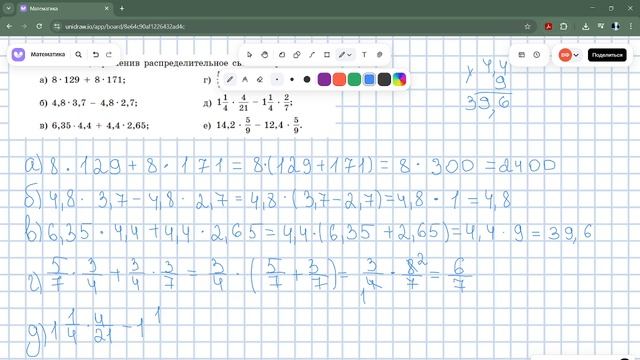 Математика
unidraw.io/app/board/8e64c90af1226432ad4c
Математика
Поделиться
распределительное
а) 8 · 129 + 8 · 171;
г)
б) 4,8 · 3,7 – 4,8 · 2,7;
д) 1 1/4 · 4/21 – 1 1/4 · 2/7;
в) 6,35 · 4,4 + 4,4 · 2,65;
е) 14,2 · 5/9 – 12,4 · 5/9.
× 4,4
9
39,6
а) 8 · 129 + 8 · 171 = 8·(129+171) = 8 · 300 = 2400
б) 4,8 · 3,7 – 4,8 · 2,7 = 4,8 · (3,7–2,7) = 4,8 · 1 = 4,8
в) 6,35 · 4,4 + 4,4 · 2,65 = 4,4·(6,35 + 2,65) = 4,4 · 9 = 39,6
г) 5/7 · 3/4 + 3/4 · 3/7 = 3/4 · (5/7 + 3/7) = 3/4 1 · 8 2/7 = 6/7
д) 1 1/4 · 4/21 – 1 1